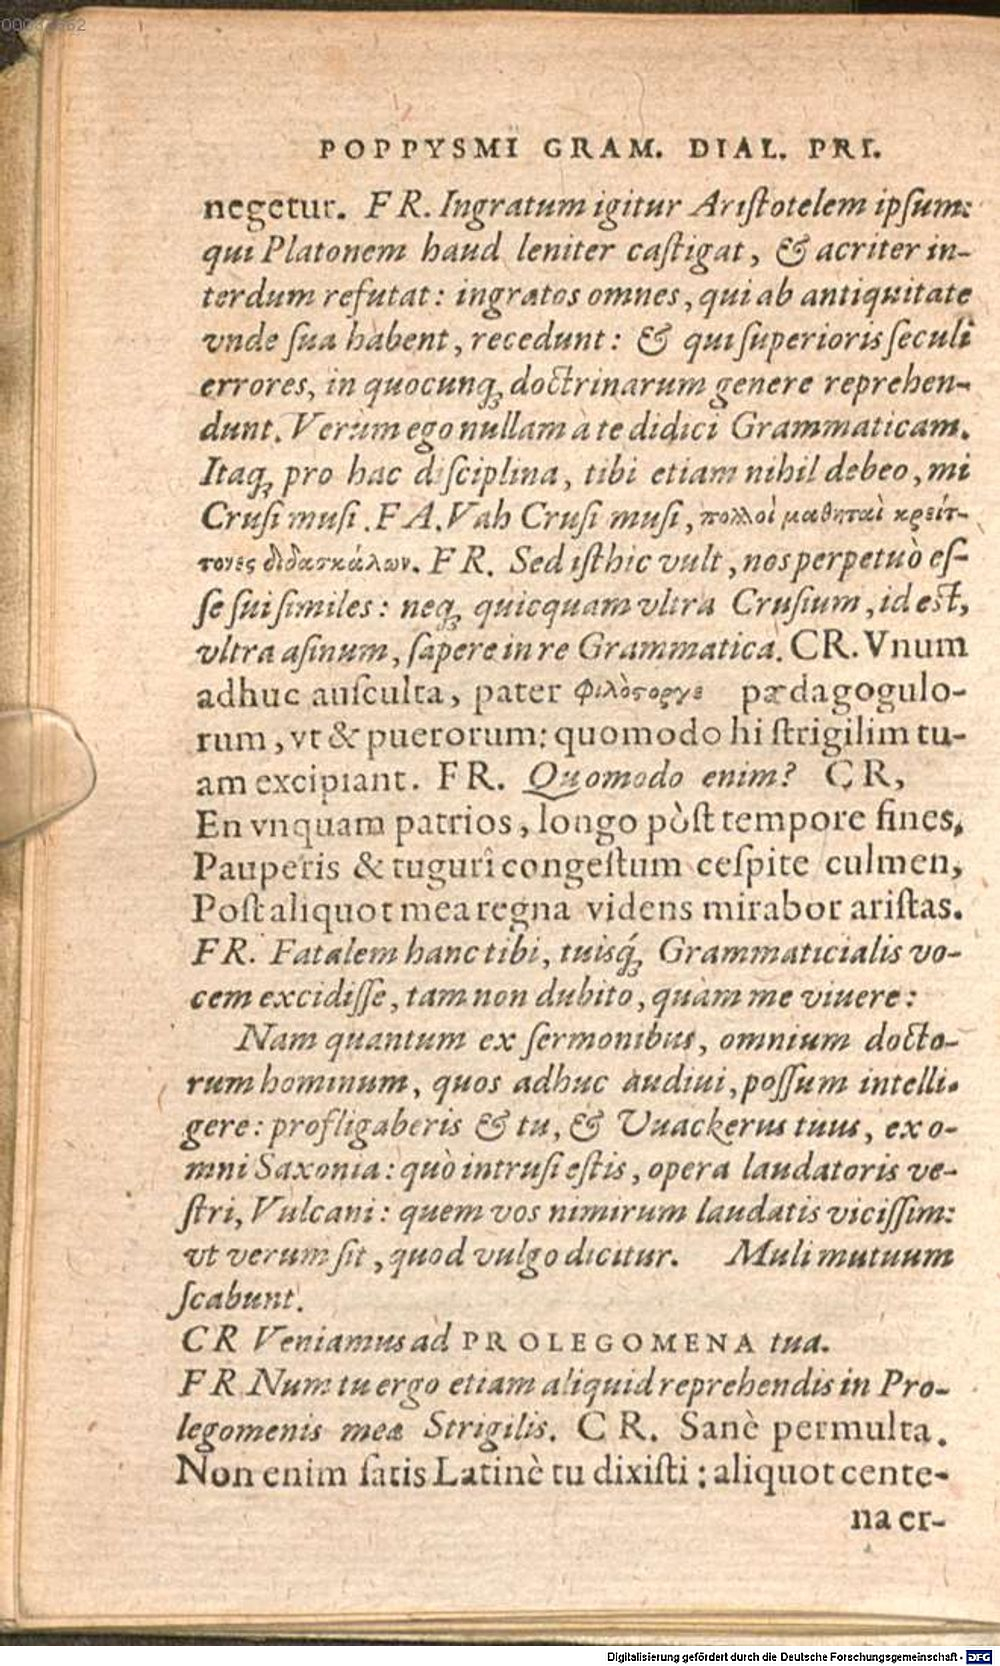 POPPYSMI GRAM. DIAL. PRI.
negetur. FR. Ingratum igitur Aristotelem ipsum:
qui Platonem haud leniter castigat, & acriter in-
terdum refutat: ingratos omnes, qui ab antiquitate
vnde sua habent, recedunt: & qui superioris seculi
errores, in quocunq; doctrinarum genere reprehen-
dunt. Verùm ego nullam à te didici Grammaticam.
Itaq; pro hac disciplina, tibi etiam nihil debeo, mi
Crusi musi. FA. Vah Crusi musi, πολλοὶ μαθηταὶ κρείτ-
τονες διδασκάλων. FR. Sed isthic vult, nos perpetuò es-
se sui similes: neq; quicquam vltra Crusium, id est,
vltra asinum, sapere in re Grammatica. CR. Vnum
adhuc ausculta, pater φιλόστοργε pædagogulo-
rum, vt & puerorum: quomodo hi strigilim tu-
am excipiant. FR. Quomodo enim? CR,
En vnquam patrios, longo pòst tempore fines,
Pauperis & tugurî congestum cespite culmen,
Post aliquot mea regna videns mirabor aristas.
FR. Fatalem hanc tibi, tuisq́; Grammaticialis vo-
cem excidisse, tam non dubito, quàm me viuere:
Nam quantum ex sermonibus, omnium docto-
rum hominum, quos adhuc audiui, possum intelli-
gere: profligaberis & tu, & Vuackerus tuus, ex o-
mni Saxonia: quò intrusi estis, opera laudatoris ve-
stri, Vulcani: quem vos nimirum laudatis vicissim:
vt verum sit, quod vulgo dicitur. Muli mutuum
scabunt.
CR Veniamus ad PROLEGOMENA tua.
FR Num tu ergo etiam aliquid reprehendis in Pro-
legomenis meæ Strigilis. CR. Sanè permulta.
Non enim satis Latinè tu dixisti: aliquot cente-
na er-
Digitalisierung gefördert durch die Deutsche Forschungsgemeinschaft - DFG